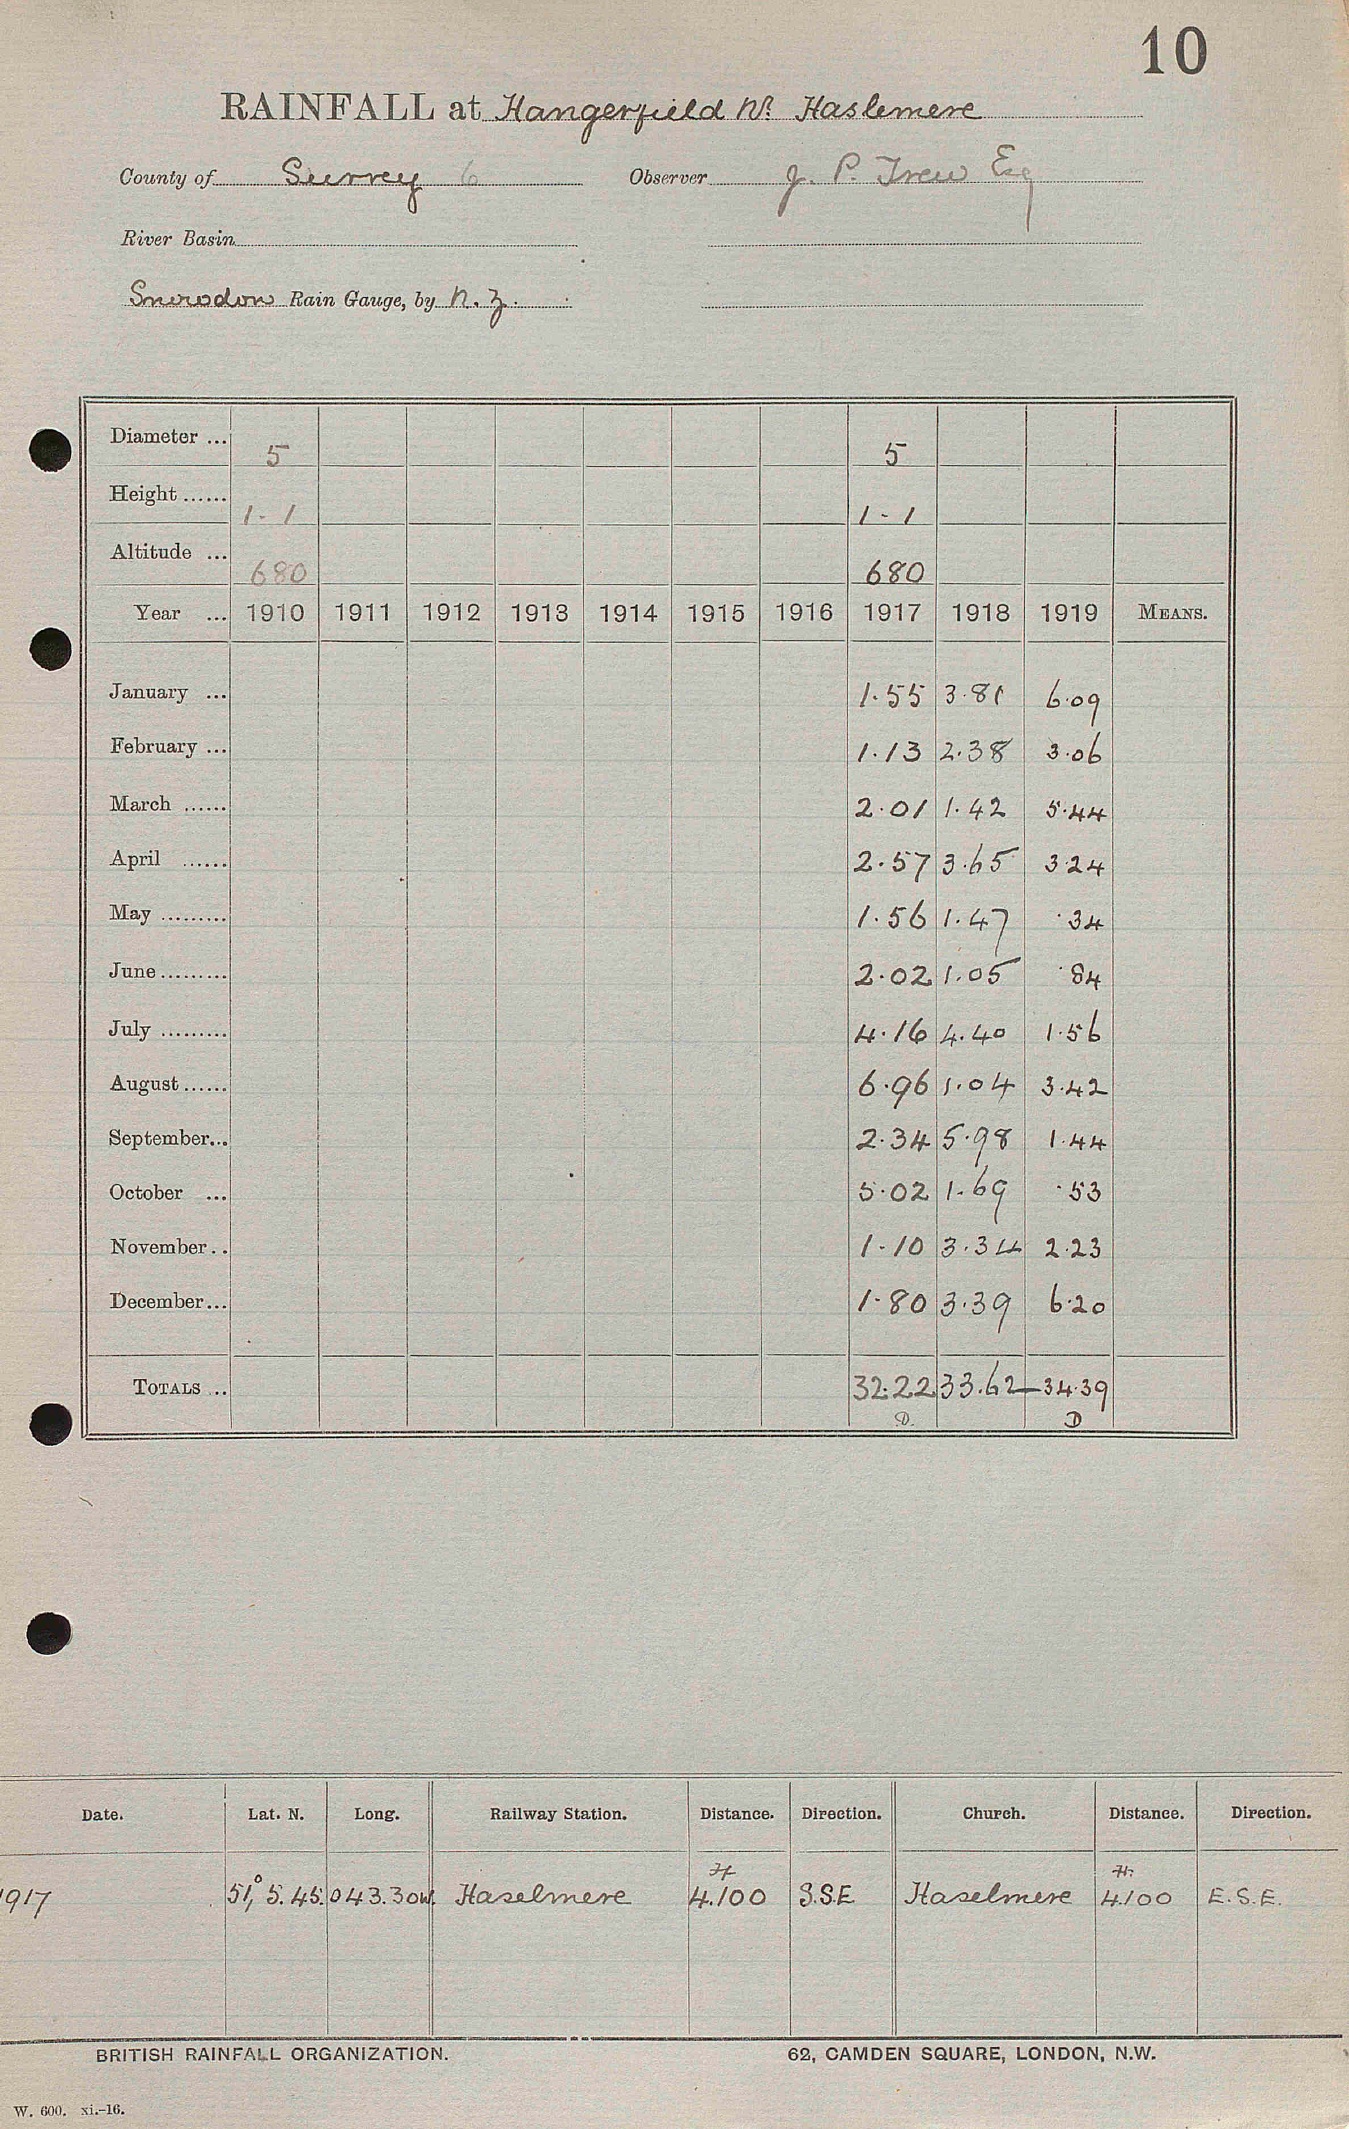 10
RAINFALL at Hangerfield Nr. Haslemere
County of Surrey 6 Observer J. P. Trew Esq
River Basin
Snowdon Rain Gauge, by N. Z.
Diameter ... 5 5
Height ...... 1-1 1-1
Altitude ... 680 680
Year ... 1910 1911 1912 1913 1914 1915 1916 1917 1918 1919 MEANS.
January ... 1.55 3.81 6.09
February ... 1.13 2.38 3.06
March ...... 2.01 1.42 5.44
April ...... 2.57 3.65 3.24
May ......... 1.56 1.47 .34
June ......... 2.02 1.05 .84
July ......... 4.16 4.40 1.56
August ...... 6.96 1.04 3.42
September... 2.34 5.98 1.44
October ... 5.02 1.69 .53
November .. 1.10 3.34 2.23
December ... 1.80 3.39 6.20
TOTALS ... 32.22 33.62 34.39
D. D
Date. Lat. N. Long. Railway Station. Distance. Direction. Church. Distance. Direction.
1917 51° 5. 45. 0 43.30W. Haselmere 4100 S.S.E Haselmere 4100 E.S.E.
BRITISH RAINFALL ORGANIZATION. 62, CAMDEN SQUARE, LONDON, N.W.
W. 600. xi.-16.